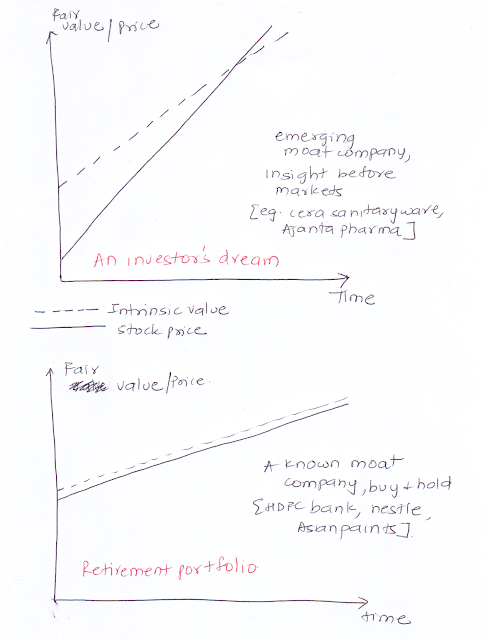 Fair
value/Price
emerging
moat company,
insight before
markets
[eg. cera sanitaryware,
Ajanta pharma]
An investor's dream
Time
Intrinsic value
stock price
Fair
value/Price.
A known moat
company, buy + hold
[HDFC bank, nestle,
Asianpaints].
Retirement portfolio
time